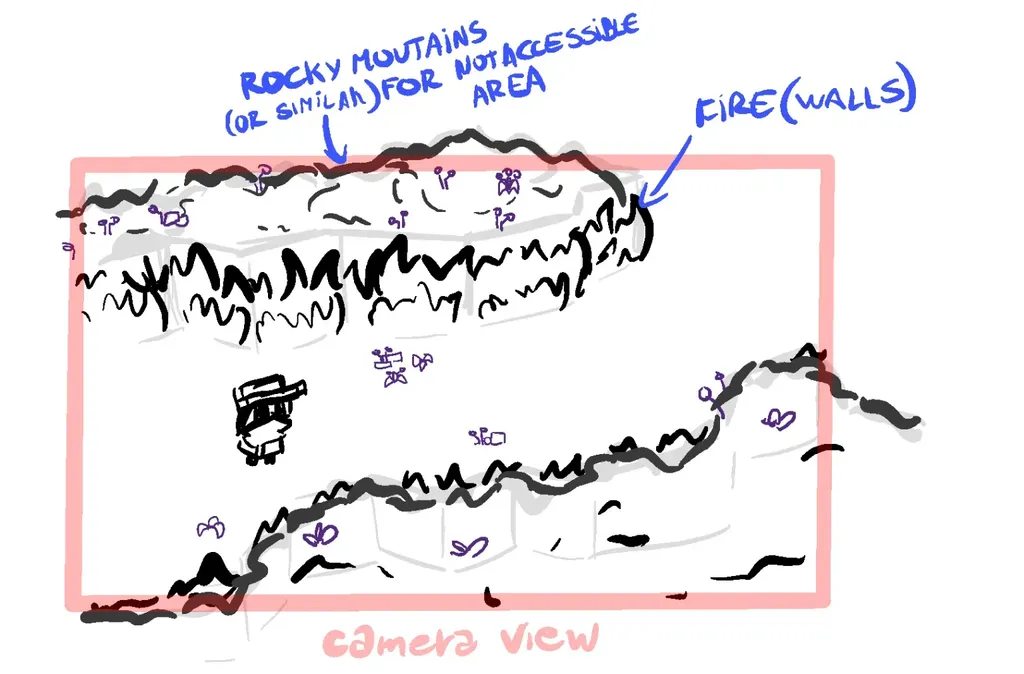 ROCKY MOUTAINS
(OR SIMILAR) FOR NOT ACCESSIBLE
AREA
FIRE (WALLS)
camera view